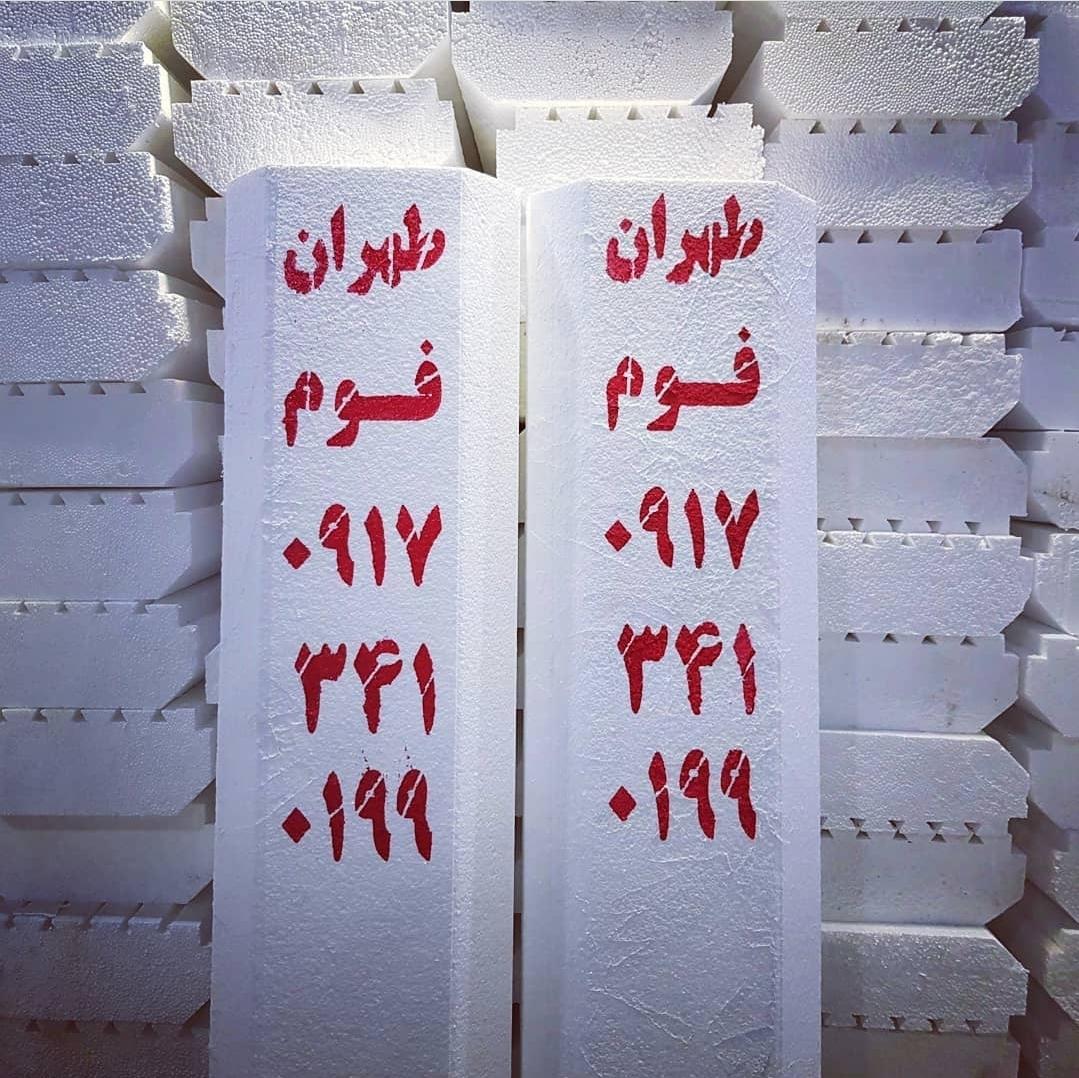 طهران
فوم
۰۹۱۷
۳۴۱
۰۱۹۹
طهران
فوم
۰۹۱۷
۳۴۱
۰۱۹۹